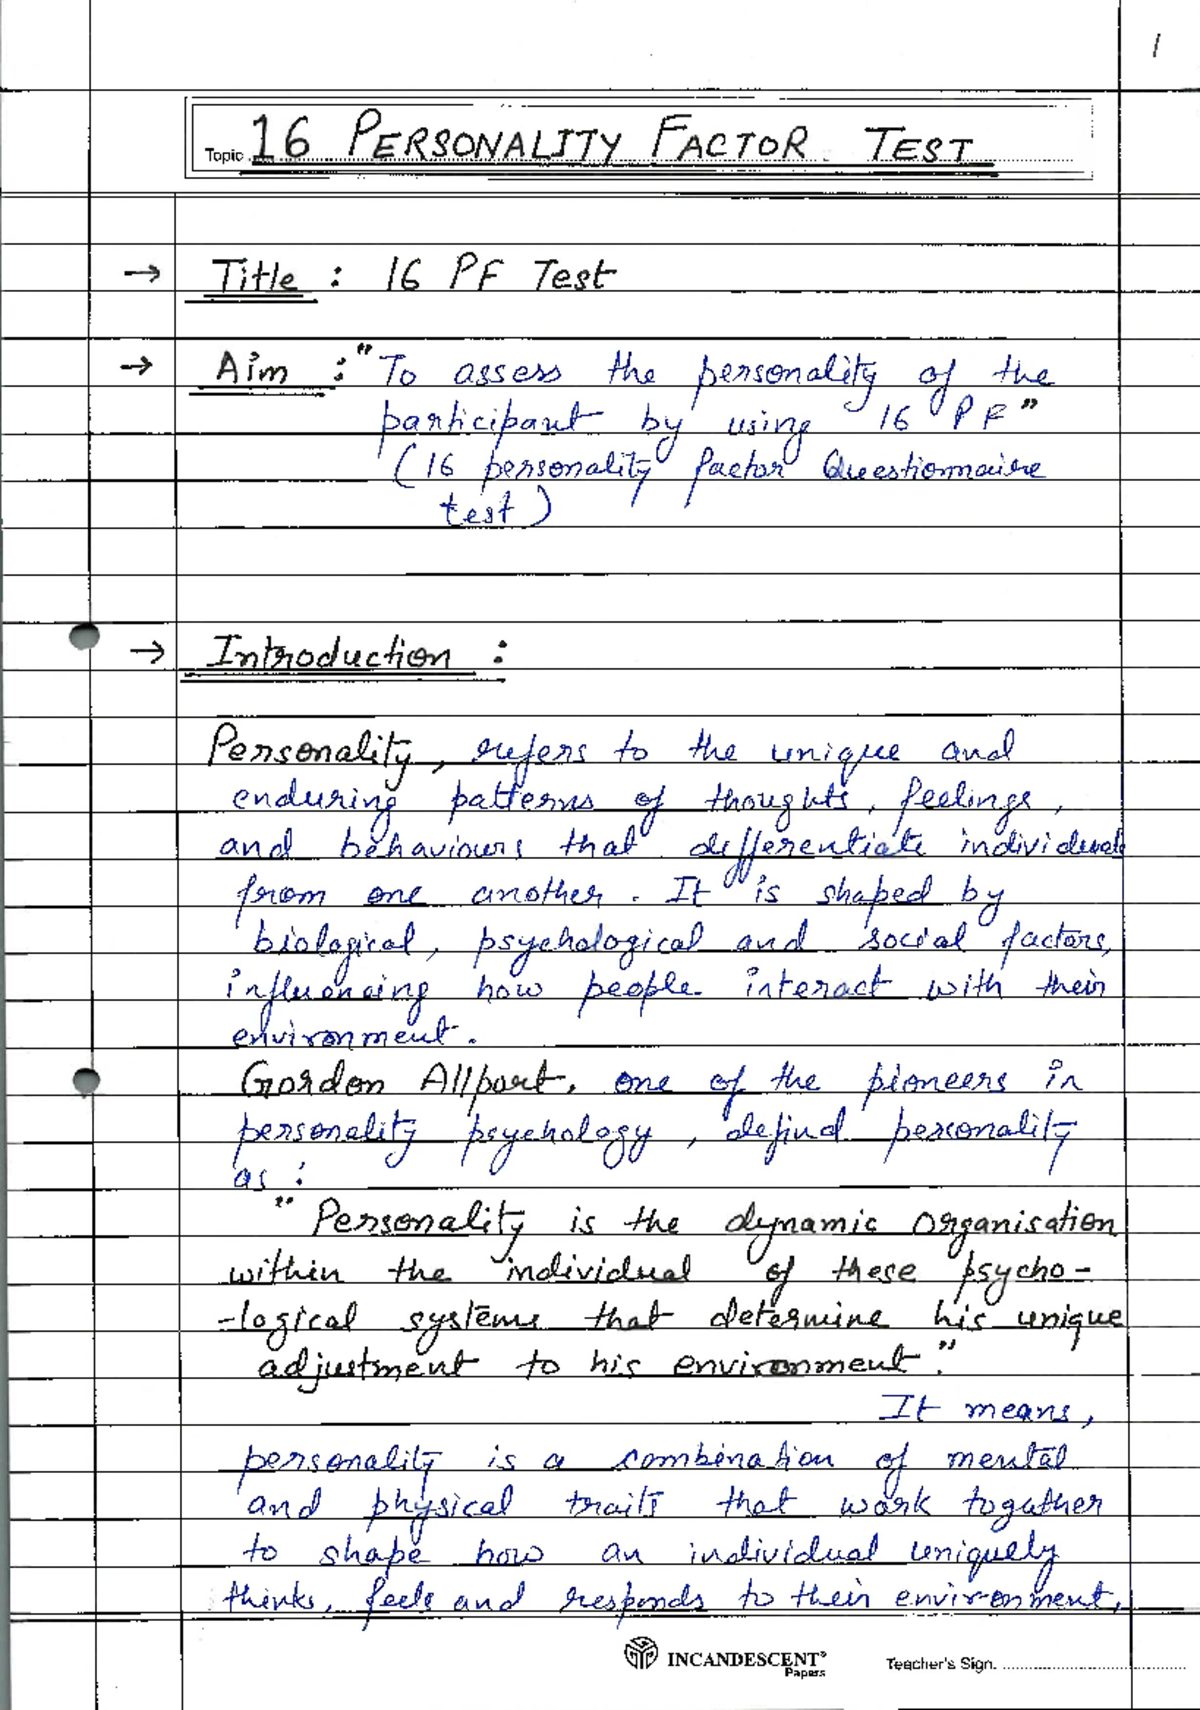 1
Topic 16 PERSONALITY FACTOR TEST
→ Title : 16 PF Test
→ Aim : "To assess the personality of the
participant by using 16 PF"
(16 personality factor Questionnaire
test)
→ Introduction :
Personality, refers to the unique and
enduring patterns of thoughts, feelings,
and behaviours that differentiate individuals
from one another. It is shaped by
biological, psychological and social factors,
influencing how people interact with their
environment.
Gordon Allport, one of the pioneers in
personality psychology, defind personality
as :
"Personality is the dynamic organisation
within the individual of these psycho-
-logical systems that determine his unique
adjustment to his environment."
It means,
personality is a combination of mental
and physical traits that work together
to shape how an individual uniquely
thinks, feels and responds to their environment.
INCANDESCENT®
Papers
Teacher's Sign. ........................